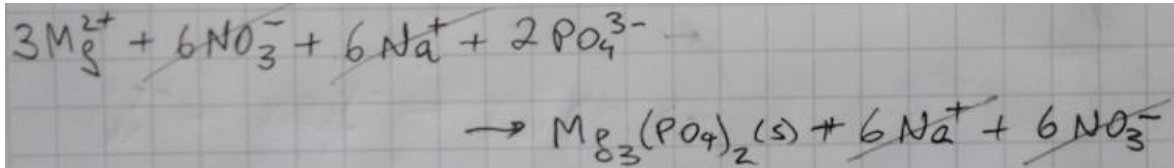 3Mg²⁺ + 6NO₃⁻ + 6Na⁺ + 2PO₄³⁻
→ Mg₃(PO₄)₂(s) + 6Na⁺ + 6NO₃⁻